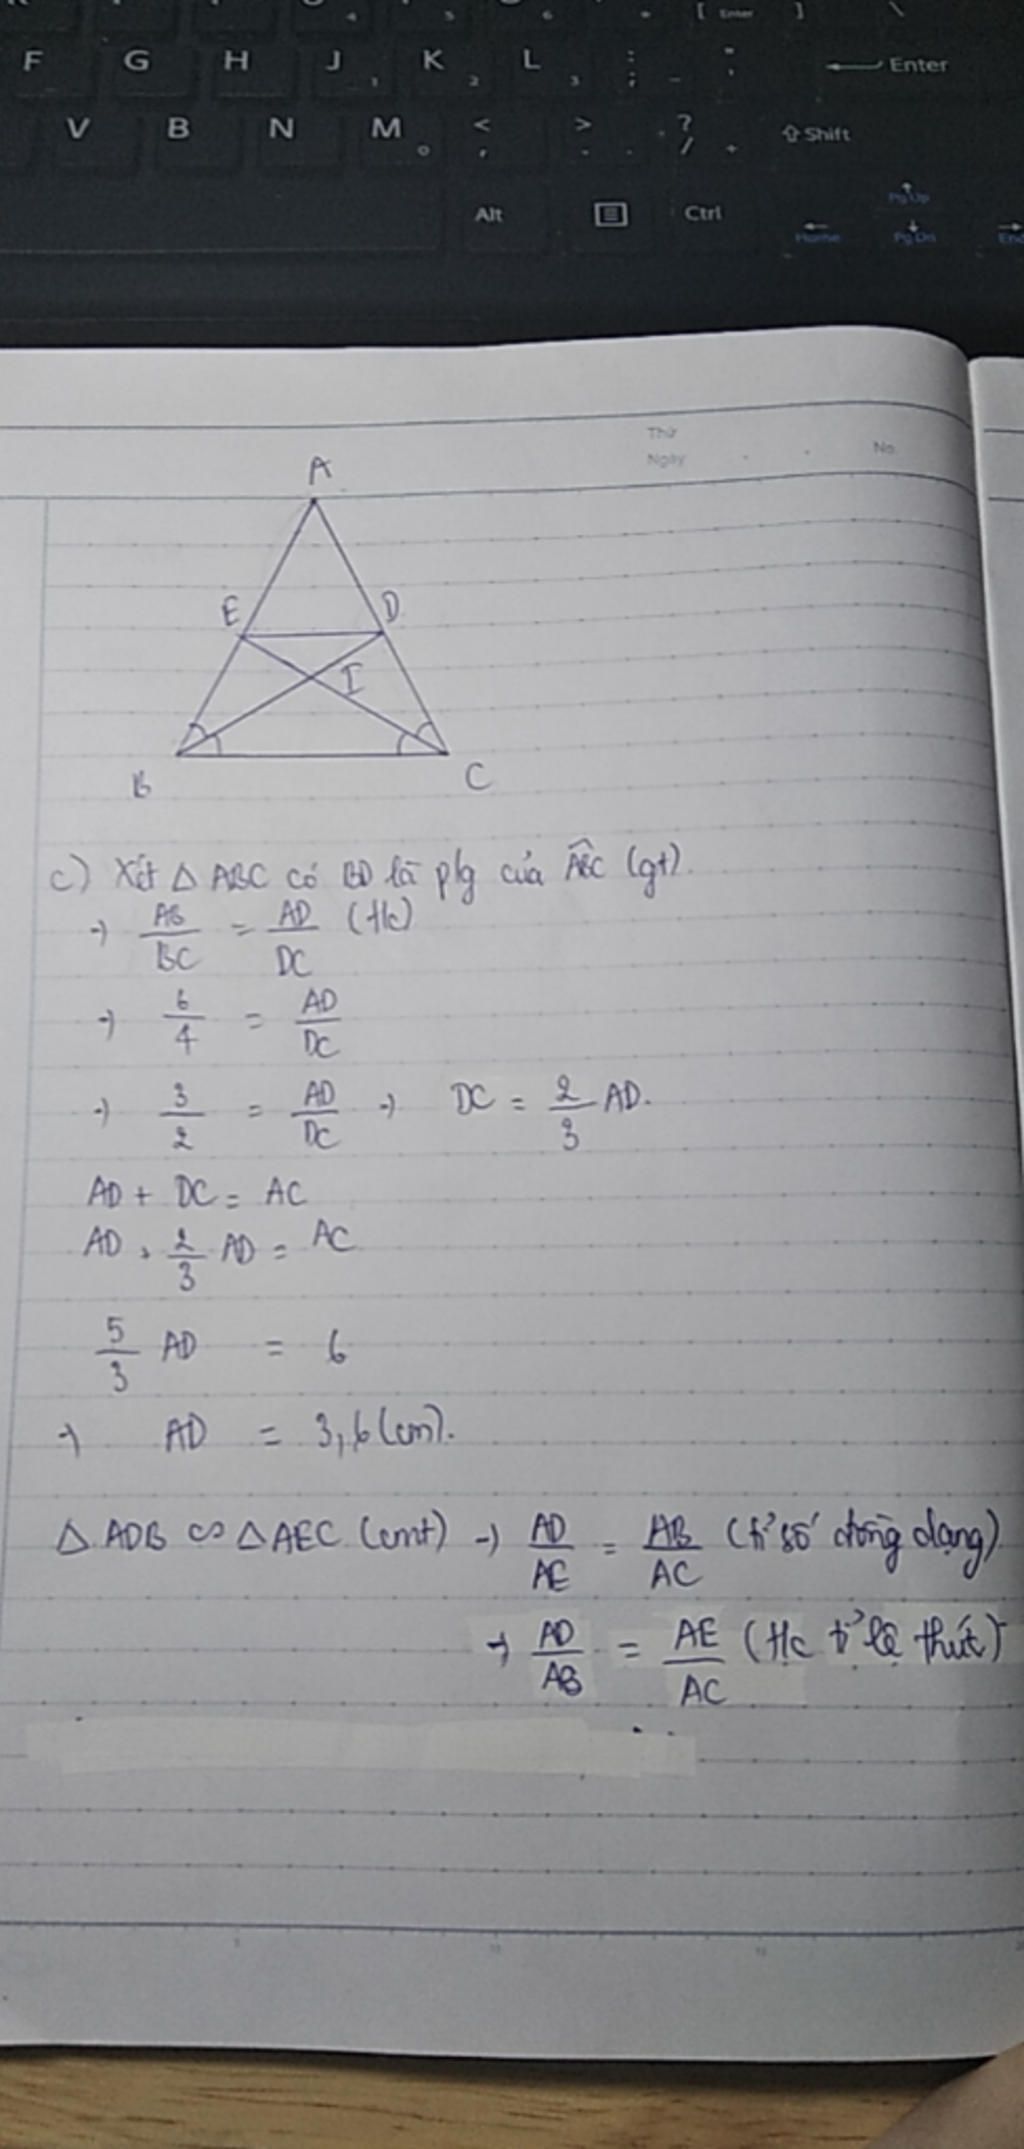 [ Enter ] \
F G H J 1 K 2 L 3 : ; - " ' ← Enter
V B N M 0 < , > . ? / + ⇧ Shift
Alt Ctrl
PgUp
Home PgDn End
Thứ
Ngày
No.
A
E D
I
B C
c) Xét △ ABC có BD là p/g của ABC (gt).
→ AB/BC = AD/DC (t/c)
→ 6/4 = AD/DC
→ 3/2 = AD/DC → DC = 2/3 AD.
AD + DC = AC
AD + 2/3 AD = AC
5/3 AD = 6
→ AD = 3,6 (cm).
△ ADB ∽ △ AEC (cmt) → AD/AE = AB/AC (tỉ số đồng dạng)
→ AD/AB = AE/AC (t/c tỉ lệ thức)
5 10 15